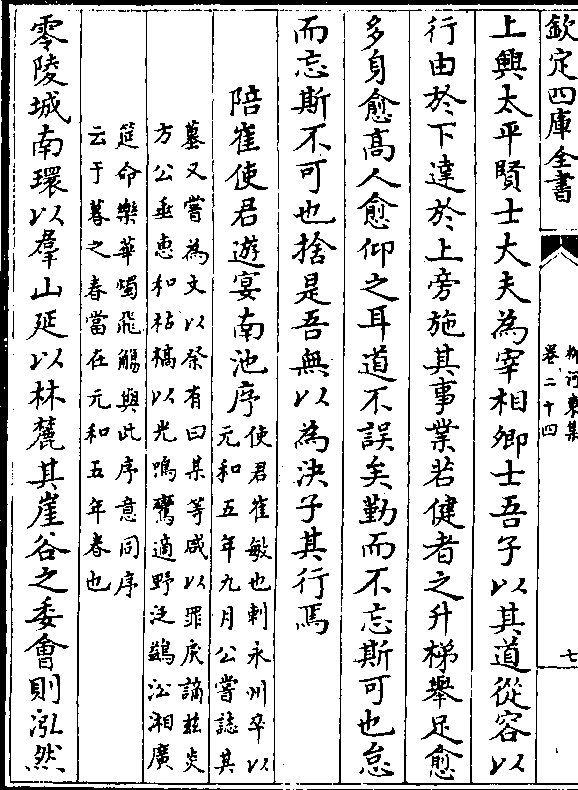 欽定四庫全書
柳河東集
卷二十四
七
上興太平賢士大夫為宰相卿士吾子以其道從容以
行由於下達於上旁施其事業若健者之升梯舉足愈
多身愈高人愈仰之耳道不誤矣勤而不忘斯可也怠
而忘斯不可也捨是吾無以為決子其行焉
陪崔使君遊宴南池序
使君崔敏也刺永州卒以
元和五年九月公嘗誌其
墓又嘗為文以祭有曰某等咸以罪戾謫兹炎
方公垂惠和枯槁以光鳴鸞適野泛鷁沿湘廣
筵命樂華燭飛觴與此序意同序
云于暮之春當在元和五年春也
零陵城南環以羣山延以林麓其崖谷之委會則泓然